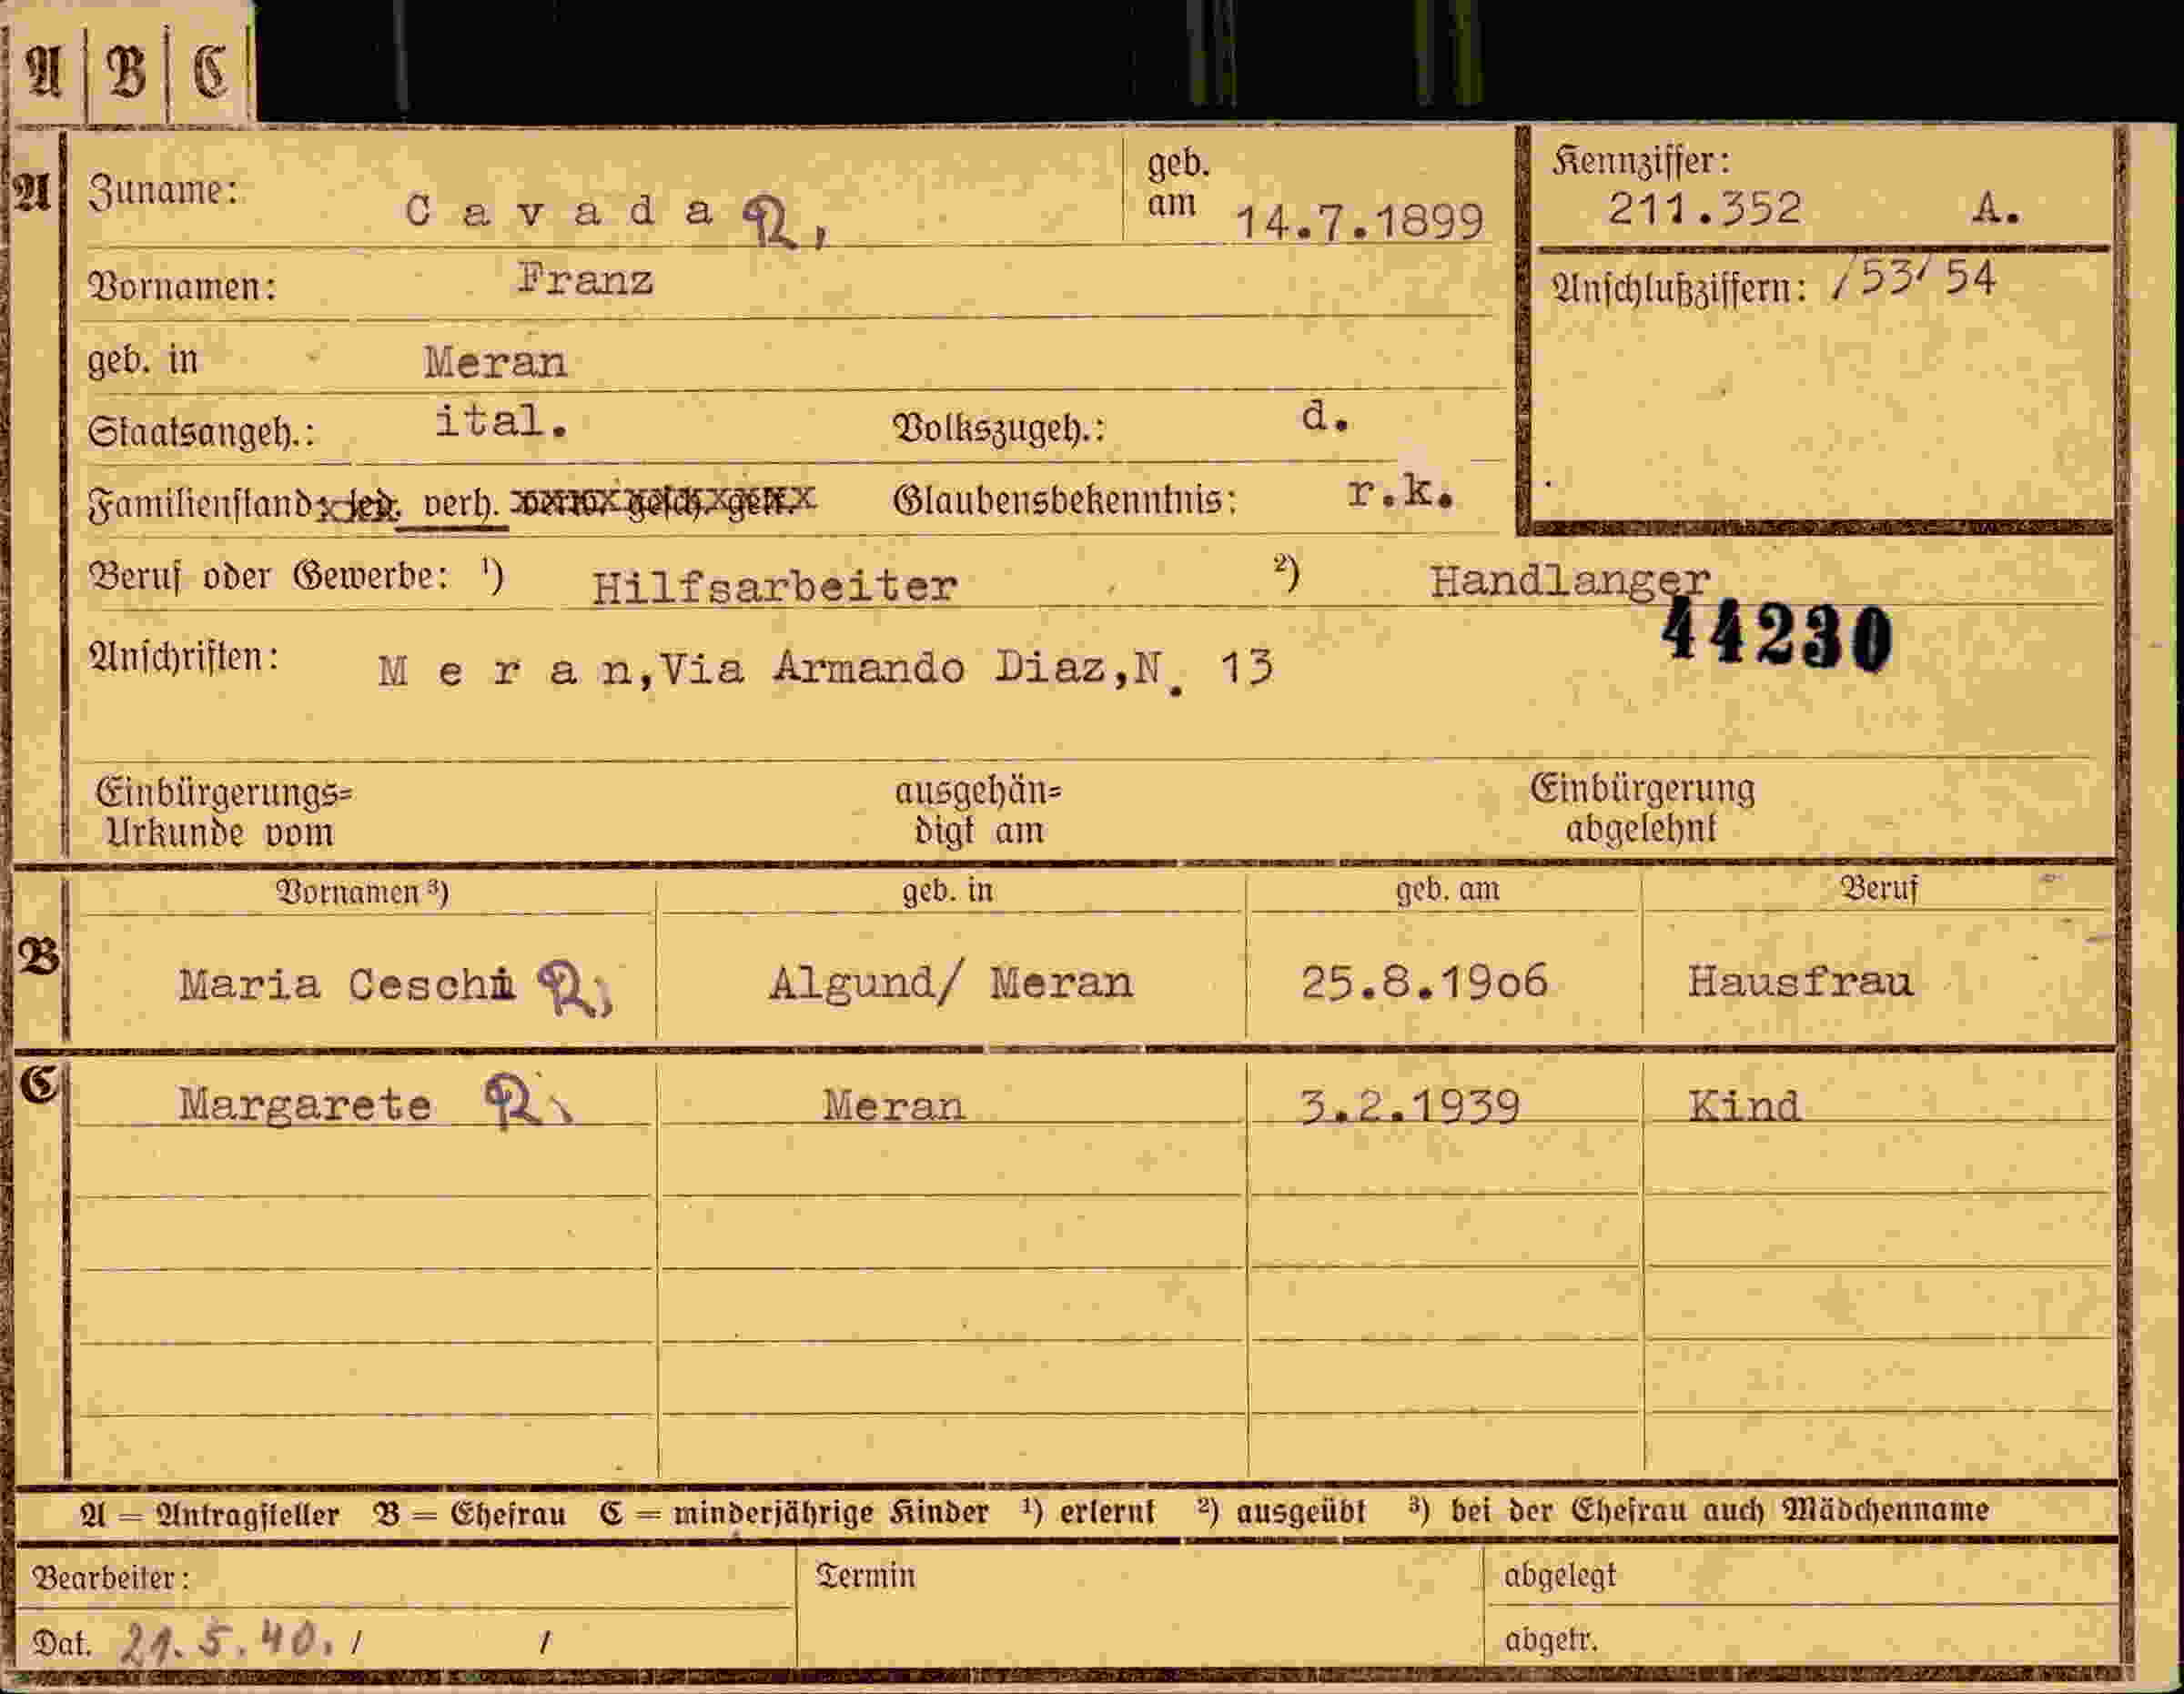 A | B | C
A Zuname: Cavada R,
geb. am 14.7.1899
Kennziffer: 211.352 A.
Vornamen: Franz
Anschlußziffern: /53/ 54
geb. in Meran
Staatsangeh.: ital. Volkszugeh.: d.
Familienstand: led. verh. verw. gesch. getr. Glaubensbekenntnis: r.k.
Beruf oder Gewerbe: ¹) Hilfsarbeiter ²) Handlanger
44230
Anschriften: Meran, Via Armando Diaz, N. 13
Einbürgerungs= ausgehän= Einbürgerung
Urkunde vom digt am abgelehnt
Vornamen ³) geb. in geb. am Beruf
B Maria Ceschi R, Algund/ Meran 25.8.19o6 Hausfrau
C Margarete R, Meran 3.2.1939 Kind
A = Antragsteller B = Ehefrau C = minderjährige Kinder ¹) erlernt ²) ausgeübt ³) bei der Ehefrau auch Mädchenname
Bearbeiter: Termin abgelegt
Dat. 21.5.40. / / abgetr.